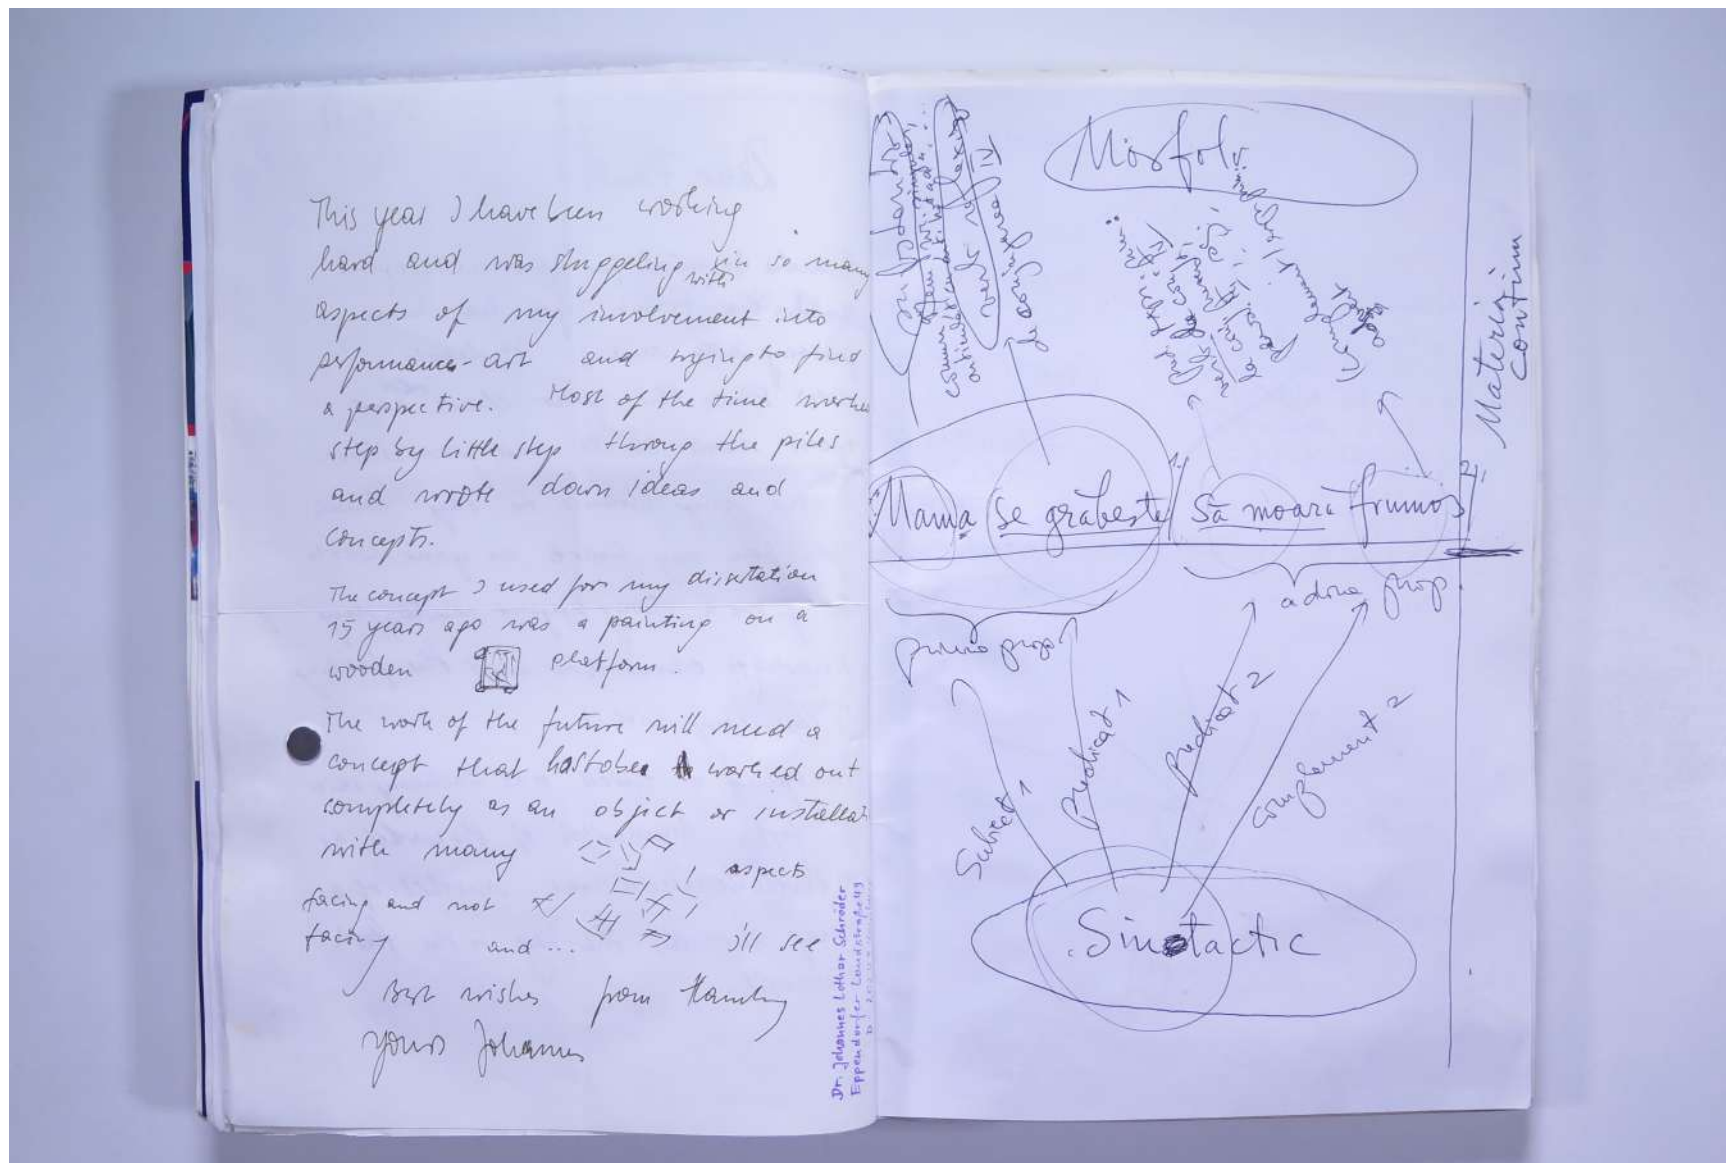 This year I have been working
hard and was struggeling with in so many
aspects of my involvement into
performance-art and trying to find
a perspective. Most of the time worked
step by little step throug the piles
and wrote down ideas and
concepts.
The concept I used for my dissertation
15 years ago was a painting on a
wooden platform.
The work of the future will need a
concept that has to be worked out
completely as an object or installat
with many aspects
facing and not
facing and ... I'll see
Best wishes from Hamburg
Yours Johannes
Dr. Johannes Lothar Schröder
Eppendorfer Landstraße 49
Morfolo
verb
de conjugarea IV
Material
Conținu
Mama se grăbește / să moară frumos
1/
2/
prima prop.
a doua prop.
Subiect 1
predicat 1
predicat 2
complement 2
Sintactic